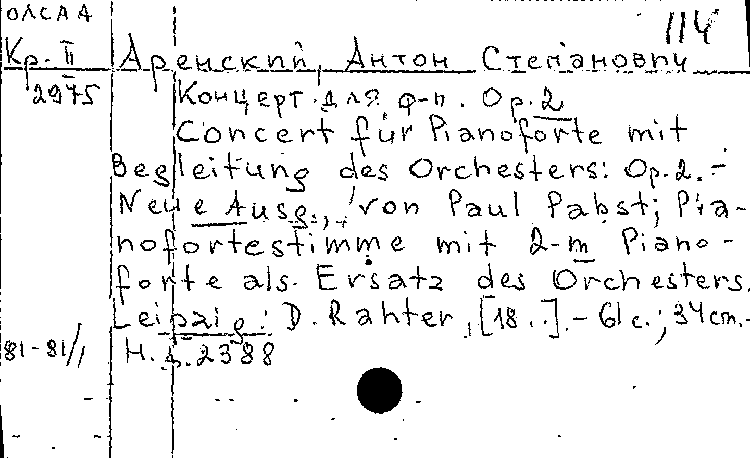 ОЛСАА
114
Кр. II Аренский, Антон Степанович
2975 Концерт для ф-п. Op.2
Concert für Pianoforte mit
Begleitung des Orchesters: Op.2. –
Neue Ausg., von Paul Pabst; Pia-
nofortestimme mit 2-m Piano-
forte als Ersatz des Orchesters.
Leipzig: D. Rahter, [18..]. – 61 c.; 34 cm. –
81-81/1 Н.д. 2388